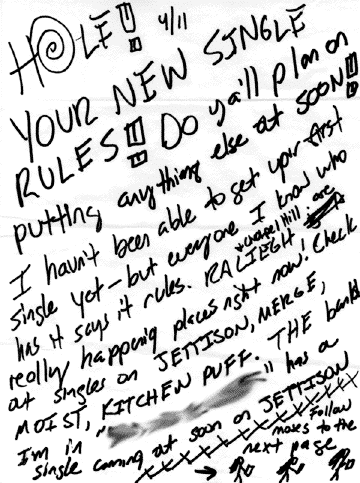 HOLE! 4/11
YOUR NEW SINGLE
RULES! Do ya'll plan on
putting anything else out SOON!!
I havn't been able to get your first
single yet - but everyone I know who
has it says it rules. RALIEGH + chapel Hill are
really happening places right now! Check
out singles on JETTISON, MERGE,
MOIST, KITCHEN PUFF. THE band
I'm in " " has a
single coming out soon on JETTISON
Follow
moses to the
→ next page